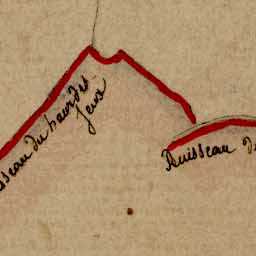 sseau du haut des
Jeux
Ruisseau de